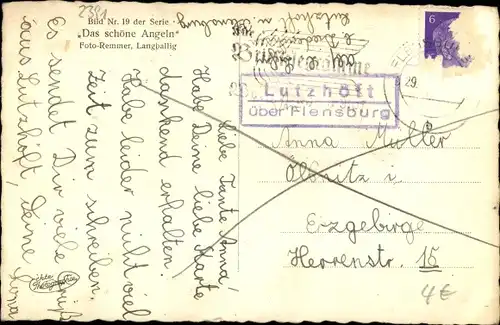 2381
Bild Nr. 19 der Serie
"Das schöne Angeln"
Foto-Remmer, Langballig
6
29.
Lutzhöft
über Flensburg
Anna Müller
Ölsnitz i/
Erzgebirge
Herrenstr. 15
4€
Liebe Tante Anna!
Habe Deine liebe Karte
dankend erhalten.
Habe leider nicht viel
Zeit zum schreiben.
Es sendet Dir viele Grüße
aus Lutzhöft, Deine